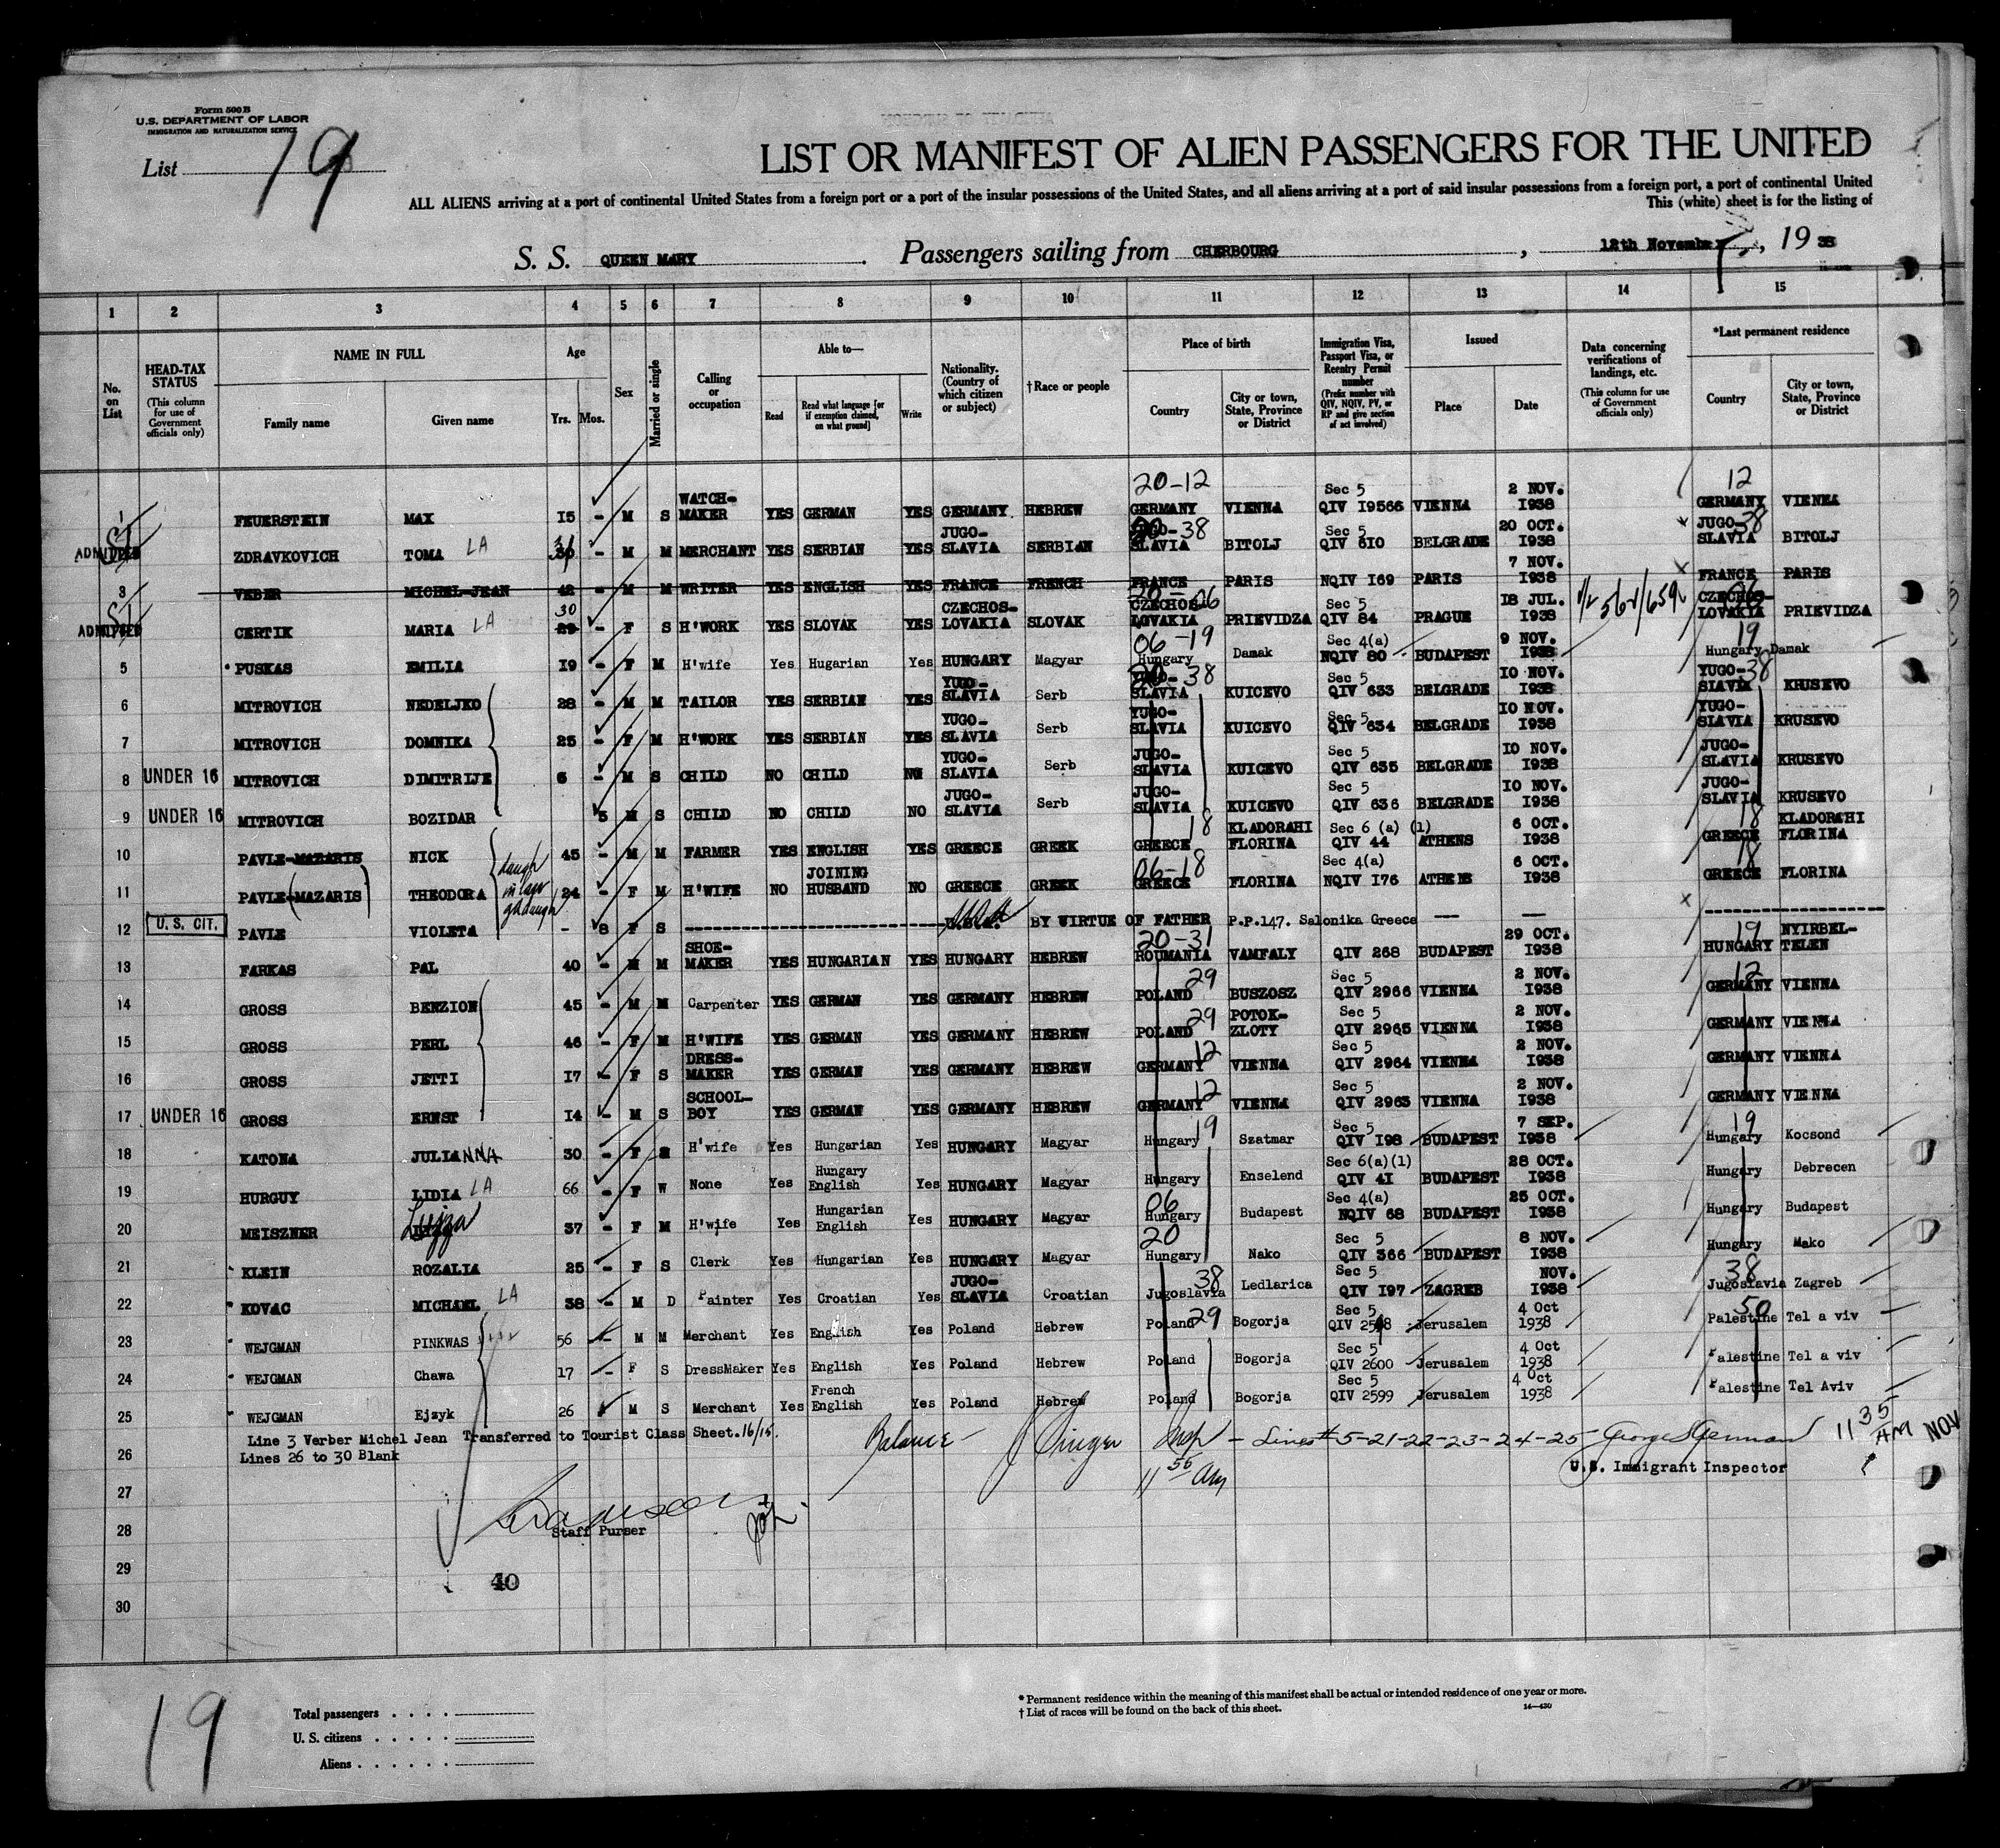 Form 500 B
U.S. DEPARTMENT OF LABOR
IMMIGRATION AND NATURALIZATION SERVICE
List 19
LIST OR MANIFEST OF ALIEN PASSENGERS FOR THE UNITED
ALL ALIENS arriving at a port of continental United States from a foreign port or a port of the insular possessions of the United States, and all aliens arriving at a port of said insular possessions from a foreign port, a port of continental United
This (white) sheet is for the listing of
S. S. QUEEN MARY. Passengers sailing from CHERBOURG, 12th November, 1938
1 2 3 4 5 6 7 8 9 10 11 12 13 14 15
No. on List
HEAD-TAX STATUS (This column for use of Government officials only)
NAME IN FULL Family name Given name
Age Yrs. Mos.
Sex
Married or single
Calling or occupation
Able to— Read Read what language [or if exemption claimed, on what ground] Write
Nationality. (Country of which citizen or subject)
†Race or people
Place of birth Country City or town, State, Province or District
Immigration Visa, Passport Visa, or Reentry Permit number (Prefix number with QIV, NQIV, PV, or RP and give section of act involved)
Issued Place Date
Data concerning verifications of landings, etc. (This column for use of Government officials only)
*Last permanent residence Country City or town, State, Province or District
1 FEUERSTEIN MAX 15 - M S WATCH-MAKER YES GERMAN YES GERMANY HEBREW 20-12 GERMANY VIENNA Sec 5 QIV 19566 VIENNA 2 NOV. 1938 12 GERMANY VIENNA
SI ADMITTED ZDRAVKOVICH TOMA LA 30 31 - M M MERCHANT YES SERBIAN YES JUGO-SLAVIA SERBIAN 20-38 SLAVIA BITOLJ Sec 5 QIV 610 BELGRADE 20 OCT. 1938 x JUGO-SLAVIA 38 BITOLJ
3 VEBER MICHEL-JEAN 42 - M M WRITER YES ENGLISH YES FRANCE FRENCH FRANCE PARIS NQIV 169 PARIS 7 NOV. 1938 x FRANCE PARIS
SI ADMITTED CERTIK MARIA LA 30 29 - F S H'WORK YES SLOVAK YES CZECHOS-LOVAKIA SLOVAK 20-06 CZECHOS-LOVAKIA PRIEVIDZA Sec 5 QIV 84 PRAGUE 18 JUL. 1938 06 CZECHOS-LOVAKIA PRIEVIDZA
5 PUSKAS EMILIA 19 - F M H'wife Yes Hugarian Yes HUNGARY Magyar 06-19 Hungary Damak Sec 4(a) NQIV 80 BUDAPEST 9 NOV. 1938 19 Hungary Damak
6 MITROVICH NEDELJKO 28 - M M TAILOR YES SERBIAN YES YUGO-SLAVIA Serb 20-38 SLAVIA KUICEVO Sec 5 QIV 633 BELGRADE 10 NOV. 1938 YUGO-SLAVIA 38 KRUSEVO
7 MITROVICH DOMNIKA 25 - F M H'WORK YES SERBIAN YES YUGO-SLAVIA Serb YUGO-SLAVIA KUICEVO Sec 5 QIV 634 BELGRADE 10 NOV. 1938 YUGO-SLAVIA KRUSEVO
8 UNDER 16 MITROVICH DIMITRIJE 6 - M S CHILD NO CHILD NO YUGO-SLAVIA Serb JUGO-SLAVIA KUICEVO Sec 5 QIV 635 BELGRADE 10 NOV. 1938 JUGO-SLAVIA KRUSEVO
9 UNDER 16 MITROVICH BOZIDAR 5 M S CHILD NO CHILD NO JUGO-SLAVIA Serb JUGO-SLAVIA KUICEVO Sec 5 QIV 636 BELGRADE 10 NOV. 1938 JUGO-SLAVIA KRUSEVO
10 PAVLE-MAZARIS NICK 45 - M M FARMER YES ENGLISH YES GREECE GREEK 18 GREECE KLADORAHI FLORINA Sec 6 (a) (1) QIV 44 ATHENS 6 OCT. 1938 18 GREECE KLADORAHI FLORINA
11 PAVLE (MAZARIS) THEODORA daugh in law 24 - F M H'WIFE NO JOINING HUSBAND NO GREECE GREEK 06-18 GREECE FLORINA Sec 4(a) NQIV 176 ATHENS 6 OCT. 1938 18 GREECE FLORINA
12 U.S. CIT. PAVLE VIOLETA gddaugh - 8 F S U.S.A. BY WIRTUE OF FATHER P.P.147. Salonika Greece — — x
13 FARKAS PAL 40 - M M SHOE-MAKER YES HUNGARIAN YES HUNGARY HEBREW 20-31 ROUMANIA VAMFALY QIV 268 BUDAPEST 29 OCT. 1938 19 HUNGARY NYIRBEL-TELEN
14 GROSS BENZION 45 - M M Carpenter YES GERMAN YES GERMANY HEBREW 29 POLAND BUSZOSZ Sec 5 QIV 2966 VIENNA 2 NOV. 1938 12 GERMANY VIENNA
15 GROSS PERL 46 - F M H'WIFE YES GERMAN YES GERMANY HEBREW 29 POLAND POTOK-ZLOTY Sec 5 QIV 2965 VIENNA 2 NOV. 1938 GERMANY VIENNA
16 GROSS JETTI 17 - F S DRESS-MAKER YES GERMAN YES GERMANY HEBREW 12 GERMANY VIENNA Sec 5 QIV 2964 VIENNA 2 NOV. 1938 GERMANY VIENNA
17 UNDER 16 GROSS ERNST 14 - M S SCHOOL-BOY YES GERMAN YES GERMANY HEBREW 12 GERMANY VIENNA Sec 5 QIV 2963 VIENNA 2 NOV. 1938 GERMANY VIENNA
18 KATONA JULIANNA 30 - F H'wife Yes Hungarian Yes HUNGARY Magyar 19 Hungary Szatmar Sec 5 QIV 198 BUDAPEST 7 SEP. 1938 19 Hungary Kocsond
19 HURGUY LIDIA LA 66 - F W None Yes Hungary English Yes HUNGARY Magyar Hungary Enselend Sec 6(a)(1) QIV 41 BUDAPEST 28 OCT. 1938 Hungary Debrecen
20 MEISZNER Lujza 37 - F M H'wife Yes Hungarian English Yes HUNGARY Magyar 06 Hungary Budapest Sec 4(a) NQIV 68 BUDAPEST 25 OCT. 1938 Hungary Budapest
21 KLEIN ROZALIA 25 - F S Clerk Yes Hungarian Yes HUNGARY Magyar 20 Hungary Nako Sec 5 QIV 366 BUDAPEST 8 NOV. 1938 Hungary Mako
22 KOVAC MICHAEL LA 38 - M D Painter Yes Croatian Yes JUGO-SLAVIA Croatian 38 Jugoslavia Ledlarica Sec 5 QIV 197 ZAGREB NOV. 1938 38 Jugoslavia Zagreb
23 WEJGMAN PINKWAS 56 - M M Merchant Yes English Yes Poland Hebrew Poland 29 Bogorja Sec 5 QIV 2598 Jerusalem 4 Oct 1938 50 Palestine Tel a viv
24 WEJGMAN Chawa 17 - F S DressMaker Yes English Yes Poland Hebrew Poland Bogorja Sec 5 QIV 2600 Jerusalem 4 Oct 1938 Palestine Tel a viv
25 WEJGMAN Ejzyk 26 M S Merchant Yes French English Yes Poland Hebrew Poland Bogorja Sec 5 QIV 2599 Jerusalem 4 Oct 1938 Palestine Tel Aviv
Line 3 Verber Michel Jean Transferred to Tourist Class Sheet. 16/15.
26 Lines 26 to 30 Blank
Balance - J Singer Insp - Lines # 5-21-22-23-24-25- 11 35 AM NOV
11 55 AM
U.S. Immigrant Inspector
27
28 Staff Purser
29
40
30
19
Total passengers
U. S. citizens
Aliens
* Permanent residence within the meaning of this manifest shall be actual or intended residence of one year or more.
† List of races will be found on the back of this sheet.
14—430